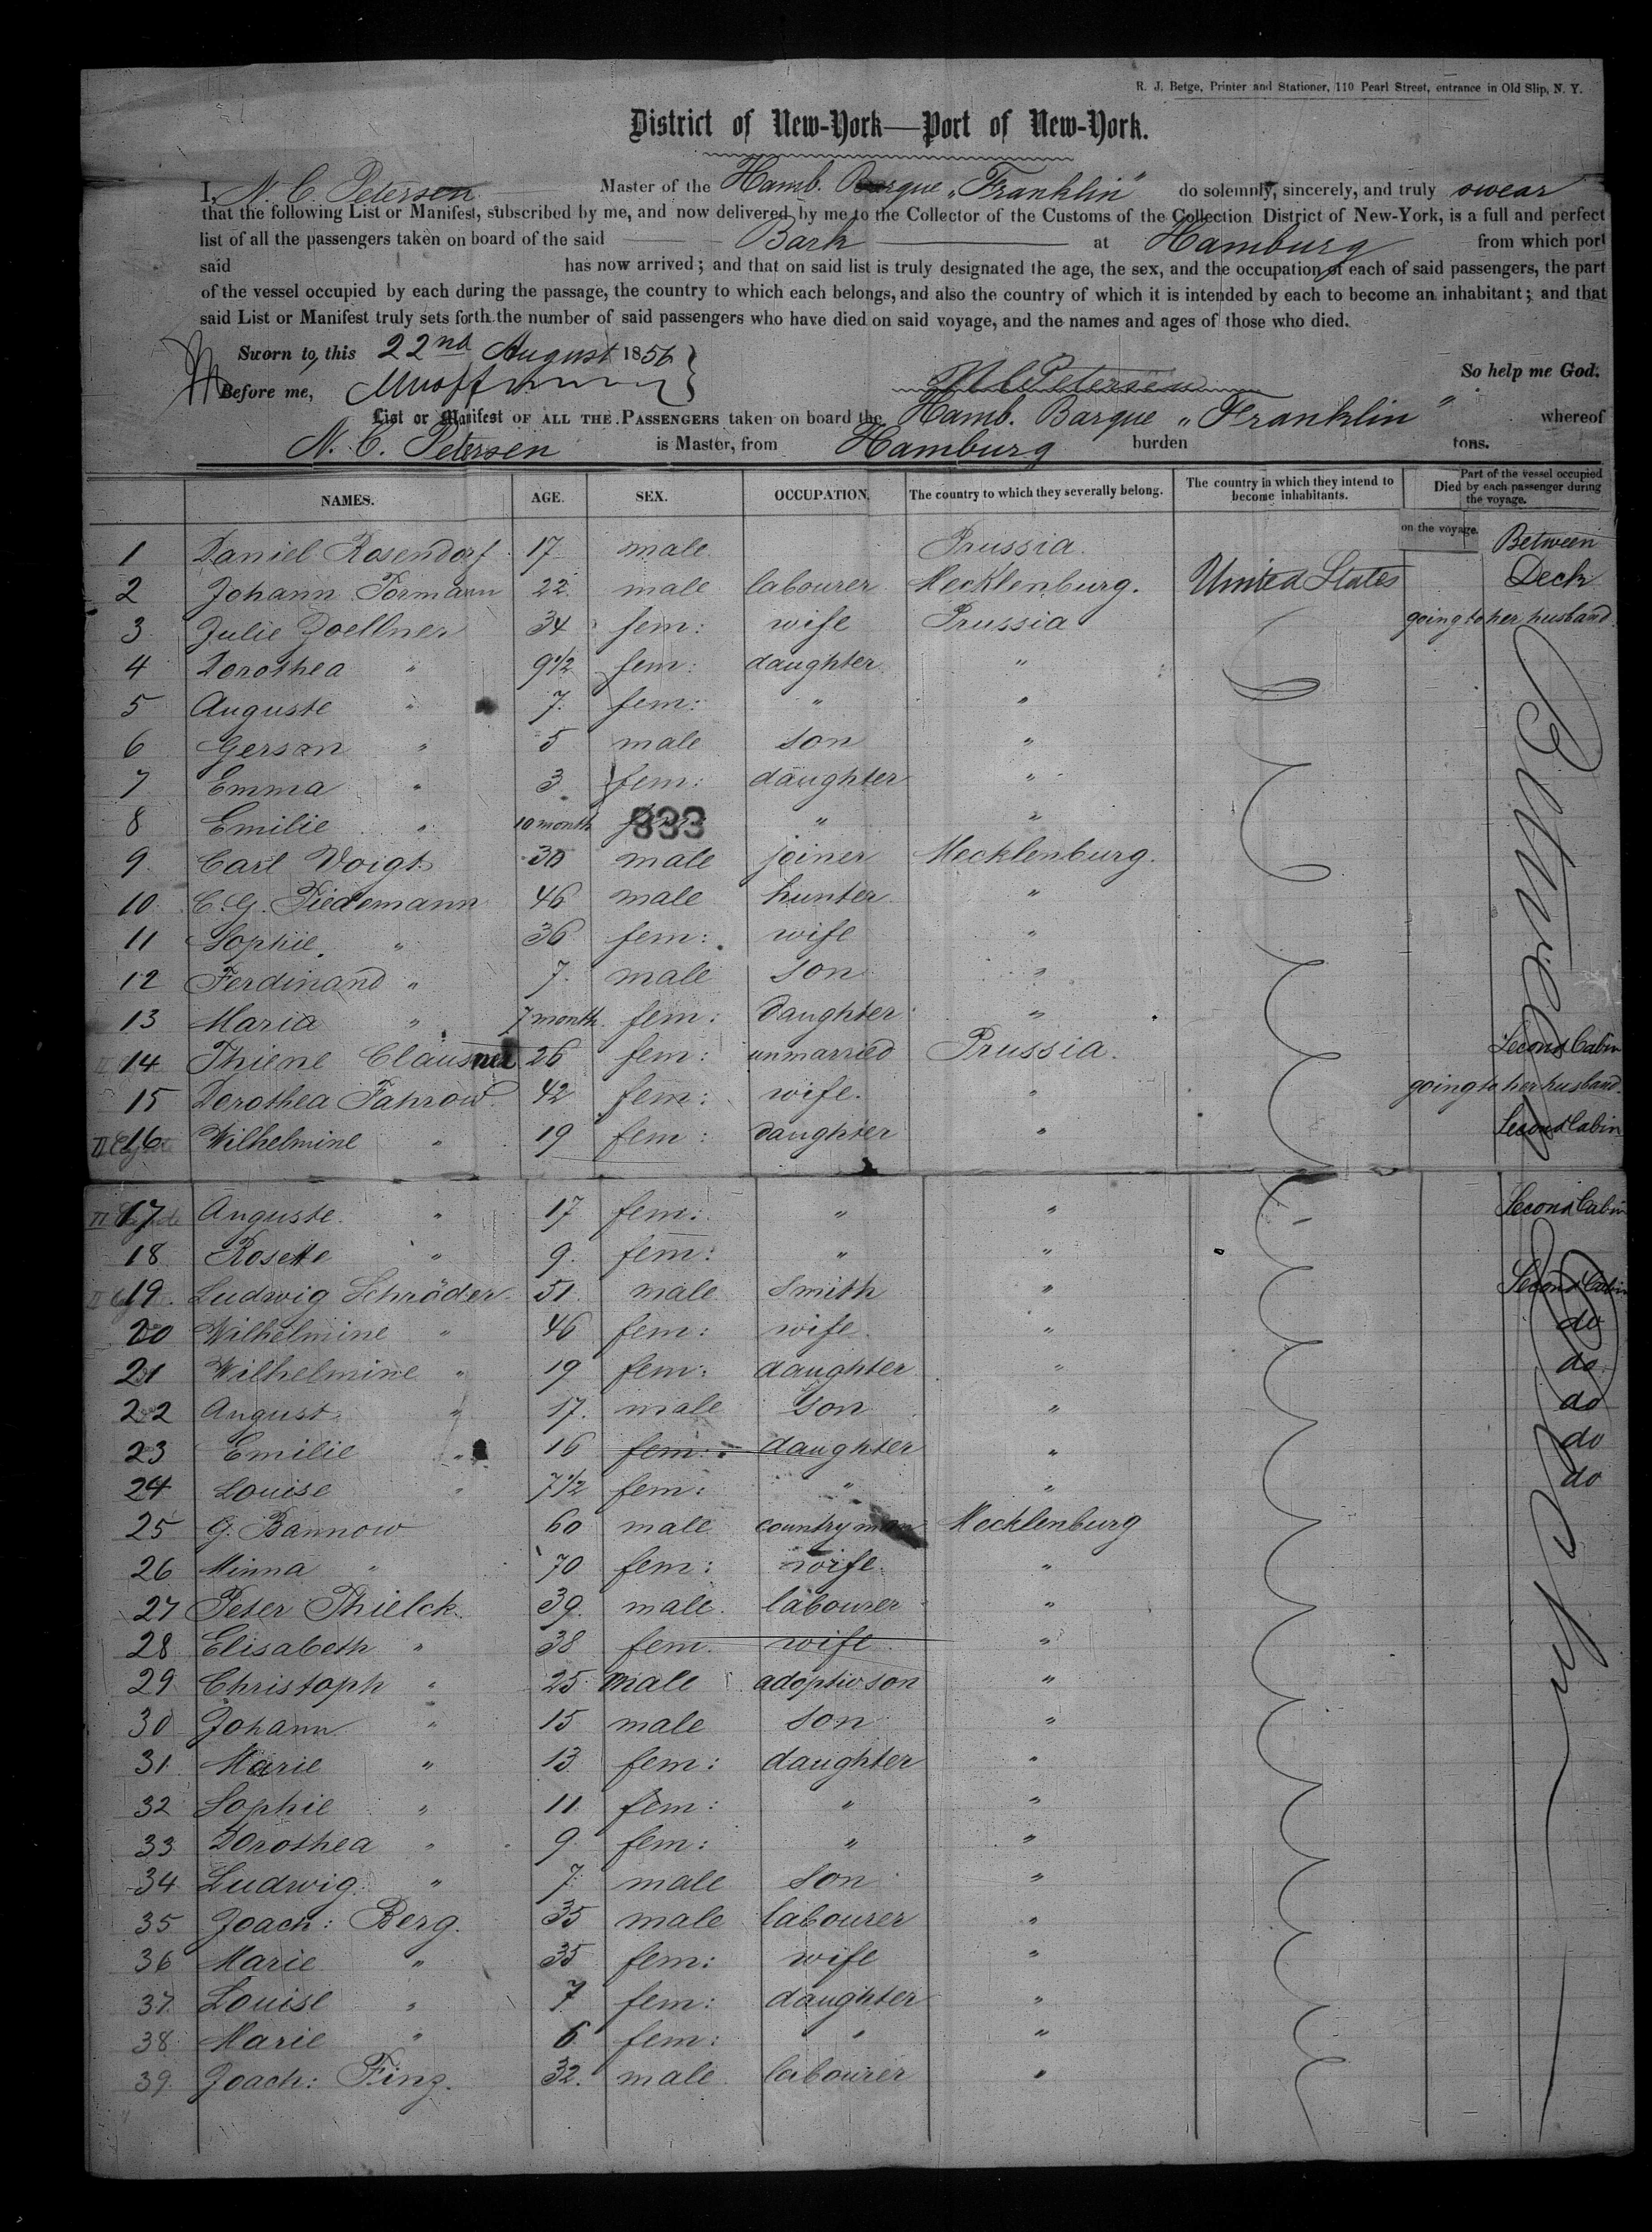 R. J. Betge, Printer and Stationer, 110 Pearl Street, entrance in Old Slip, N. Y.
District of New-York—Port of New-York.
I, N. C. Petersen Master of the Hamb. Barque „Franklin" do solemnly, sincerely, and truly swear
that the following List or Manifest, subscribed by me, and now delivered by me to the Collector of the Customs of the Collection District of New-York, is a full and perfect
list of all the passengers taken on board of the said Bark at Hamburg from which port
said has now arrived; and that on said list is truly designated the age, the sex, and the occupation of each of said passengers, the part
of the vessel occupied by each during the passage, the country to which each belongs, and also the country of which it is intended by each to become an inhabitant; and that
said List or Manifest truly sets forth the number of said passengers who have died on said voyage, and the names and ages of those who died.
Sworn to, this 22nd August 1856 So help me God.
Before me, N C Petersen
List or Manifest OF ALL THE PASSENGERS taken on board the Hamb. Barque „Franklin" whereof
N. C. Petersen is Master, from Hamburg burden tons.
NAMES. AGE. SEX. OCCUPATION. The country to which they severally belong. The country in which they intend to become inhabitants. Died on the voyage. Part of the vessel occupied by each passenger during the voyage.
1 Daniel Rosendorf 17 male Prussia. Between
2 Johann Formann 22 male labourer Mecklenburg. United States Deck
3 Julie Zoellner 34 fem: wife Prussia going to her husband.
4 Dorothea " 9 1/2 fem: daughter "
5 Auguste " 7. fem: " "
6 Gerson " 5 male son "
7 Emma " 3 fem: daughter "
8 Emilie " 10 month 833 " "
9 Carl Voigt 30 male joiner Mecklenburg.
10 C. G. Tiedemann 46 male hunter "
11 Sophie " 36 fem: wife "
12 Ferdinand " 7. male son "
13 Maria " 7 month. fem: daughter "
14 Thiene Clausner 26 fem: unmarried Prussia. Second Cabin
15 Dorothea Fahrow 42 fem: wife. " going to her husband.
16 Wilhelmine " 19 fem: daughter " Second Cabin
17 Auguste " 17 fem: " " Second Cabin
18 Rosette " 9. fem: " "
19. Ludwig Schröder 51 male Smith " Second Cabin
20 Wilhelmine " 46 fem: wife " do
21 Wilhelmine " 19 fem: daughter " do
22 August " 17. male son " do
23 Emilie " 16 fem: daughter " do
24 Louise " 7 1/2 fem: " " do
25 G. Bannow 60 male countryman Mecklenburg
26 Minna " 70 fem: wife "
27 Peter Thielck 39. male labourer "
28 Elisabeth " 38 fem. wife "
29 Christoph " 25 male adoptiv son "
30 Johann " 15 male son "
31 Marie " 13 fem: daughter "
32 Sophie " 11 fem: " "
33 Dorothea " 9 fem: " "
34 Ludwig " 7 male son "
35 Joach: Berg. 35 male labourer "
36 Marie " 35 fem: wife "
37 Louise " 7 fem: daughter "
38 Marie " 6 fem: " "
39. Joach: Finz. 32. male labourer "